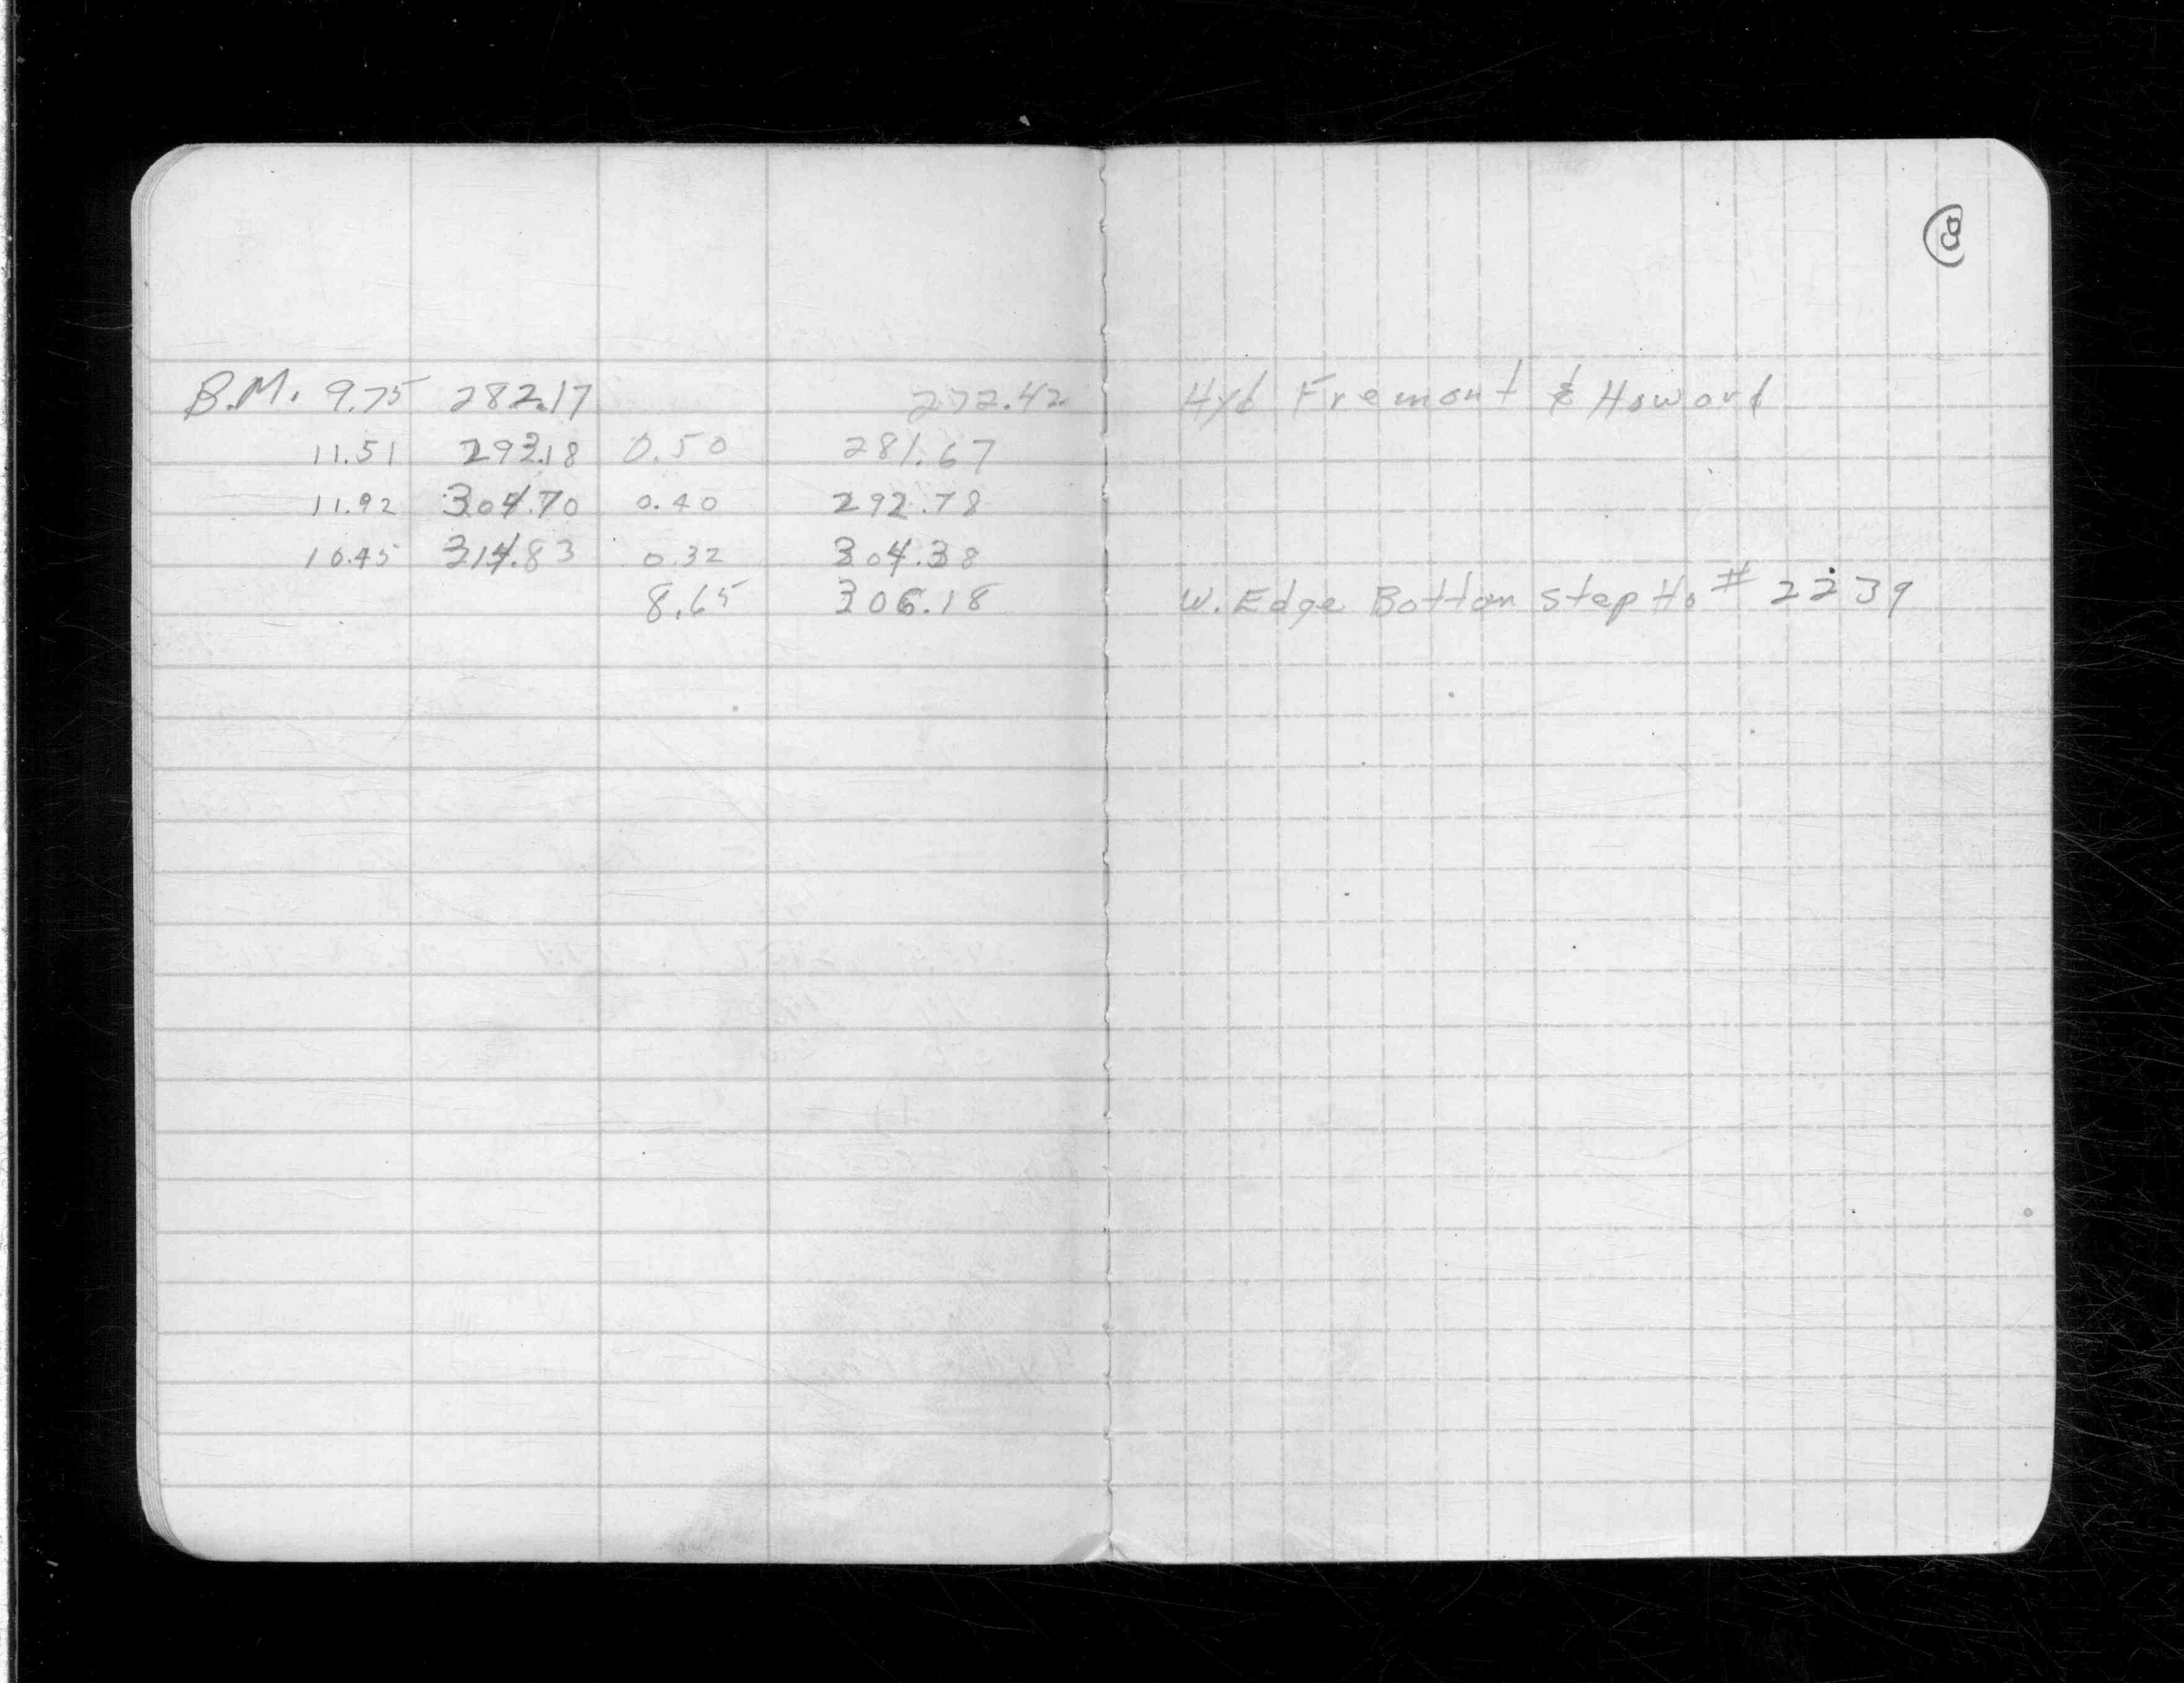 8
B.M. 9.75 282.17 272.42 Hyd Fremont & Howard
11.51 293.18 0.50 281.67
11.92 304.70 0.40 292.78
10.45 314.83 0.32 304.38
8.65 306.18 W. Edge Bottom step Ho # 2239